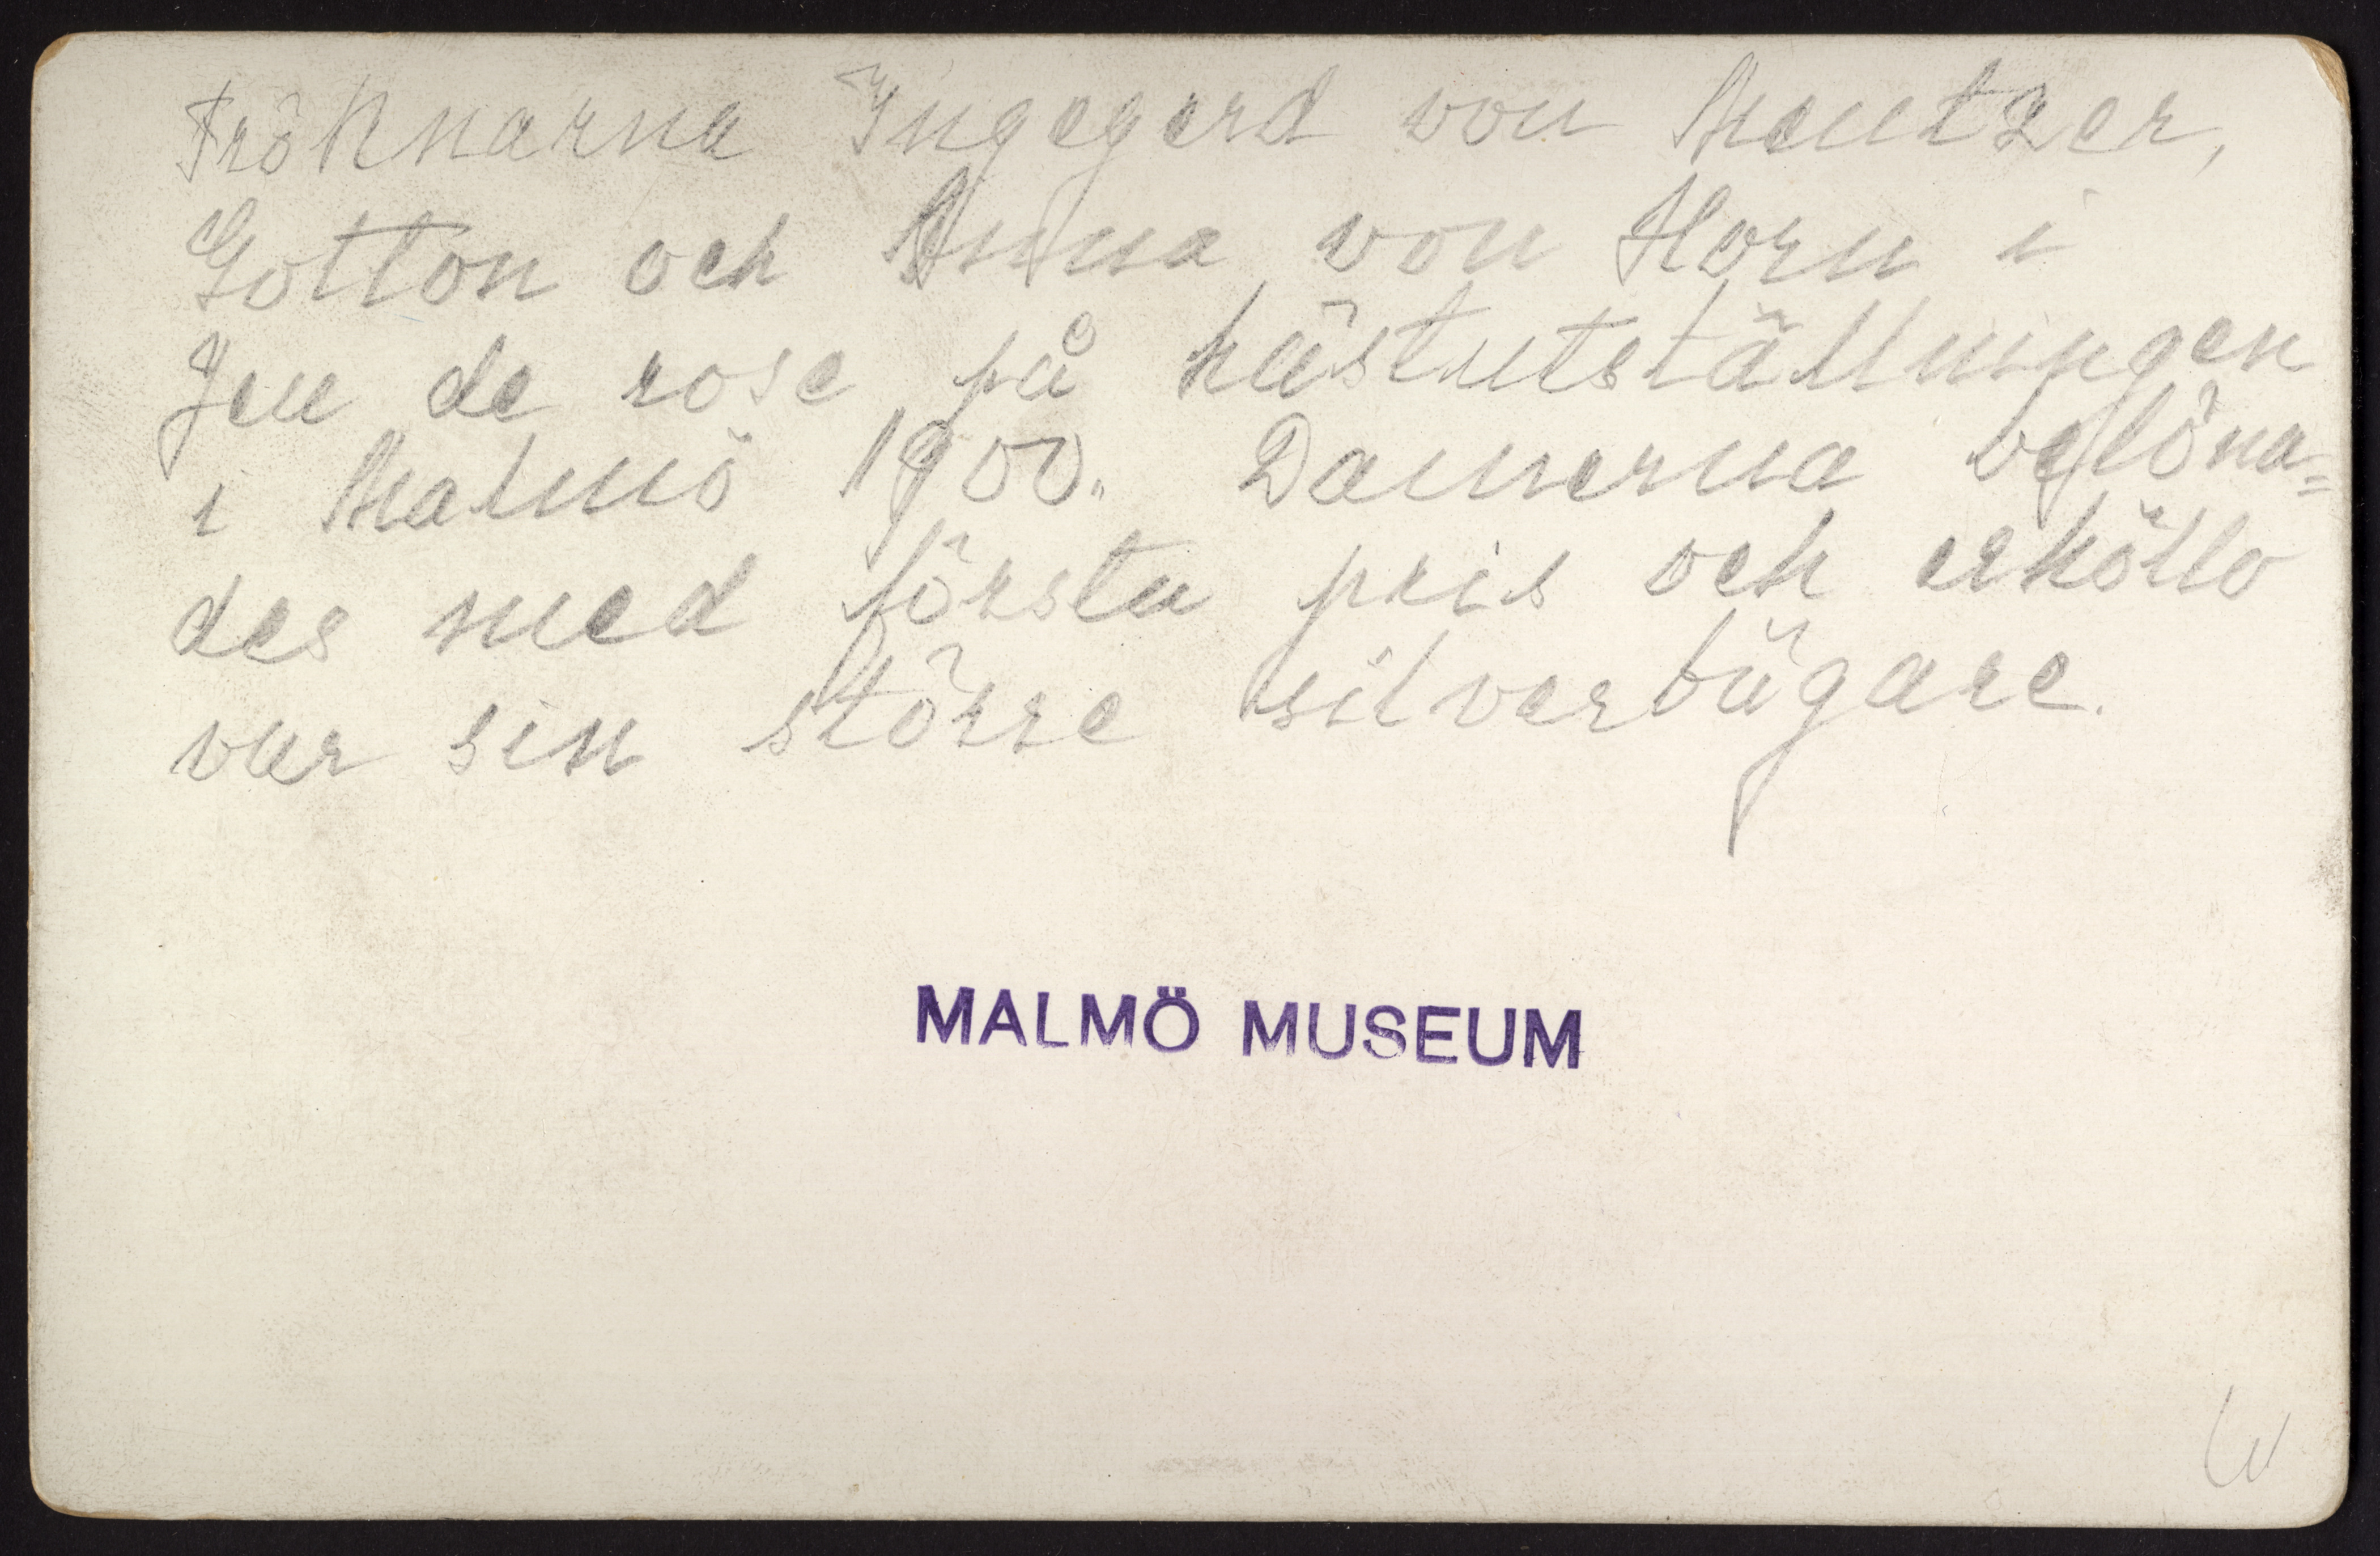 Fröknarna Ingegerd von Mentzer,
Gotton och Anna von Horn i
Jeu de rose på hästutställningen
i Malmö 1900. Damerna belöna=
des med första pris och erhöllo
var sin större silverbägare.
MALMÖ MUSEUM